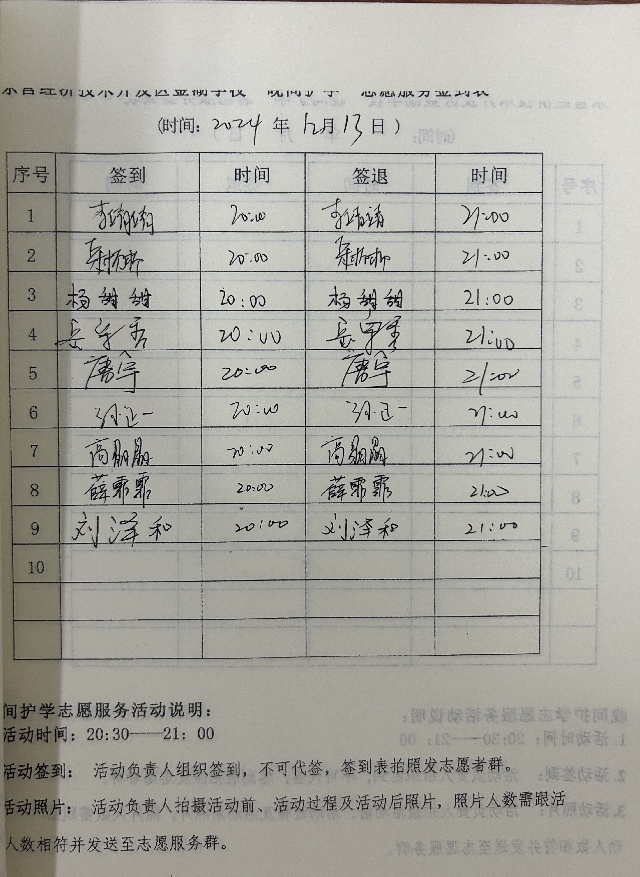 东营经济技术开发区金湖学校“晚间护学”志愿服务签到表
(时间: 2024 年 12月 13 日)
序号 签到 时间 签退 时间
1 20:00 21:00
2 20:00 21:00
3 杨甜甜 20:00 杨甜甜 21:00
4 20:00 21:00
5 唐宇 20:00 唐宇 21:00
6 孙正一 20:00 孙正一 21:00
7 高晶晶 20:00 高晶晶 21:00
8 薛霏霏 20:00 薛霏霏 21:00
9 刘泽和 20:00 刘泽和 21:00
10
间护学志愿服务活动说明:
活动时间: 20:30——21: 00
活动签到: 活动负责人组织签到,不可代签,签到表拍照发志愿者群。
活动照片: 活动负责人拍摄活动前、活动过程及活动后照片,照片人数需跟活
人数相符并发送至志愿服务群。